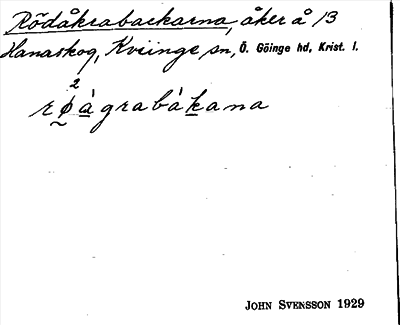 Rödåkrabackarna, åker å 13
Hanaskog, Kviinge sn, Ö. Göinge hd, Krist. l.
2
r ø à grabàkana
JOHN SVENSSON 1929